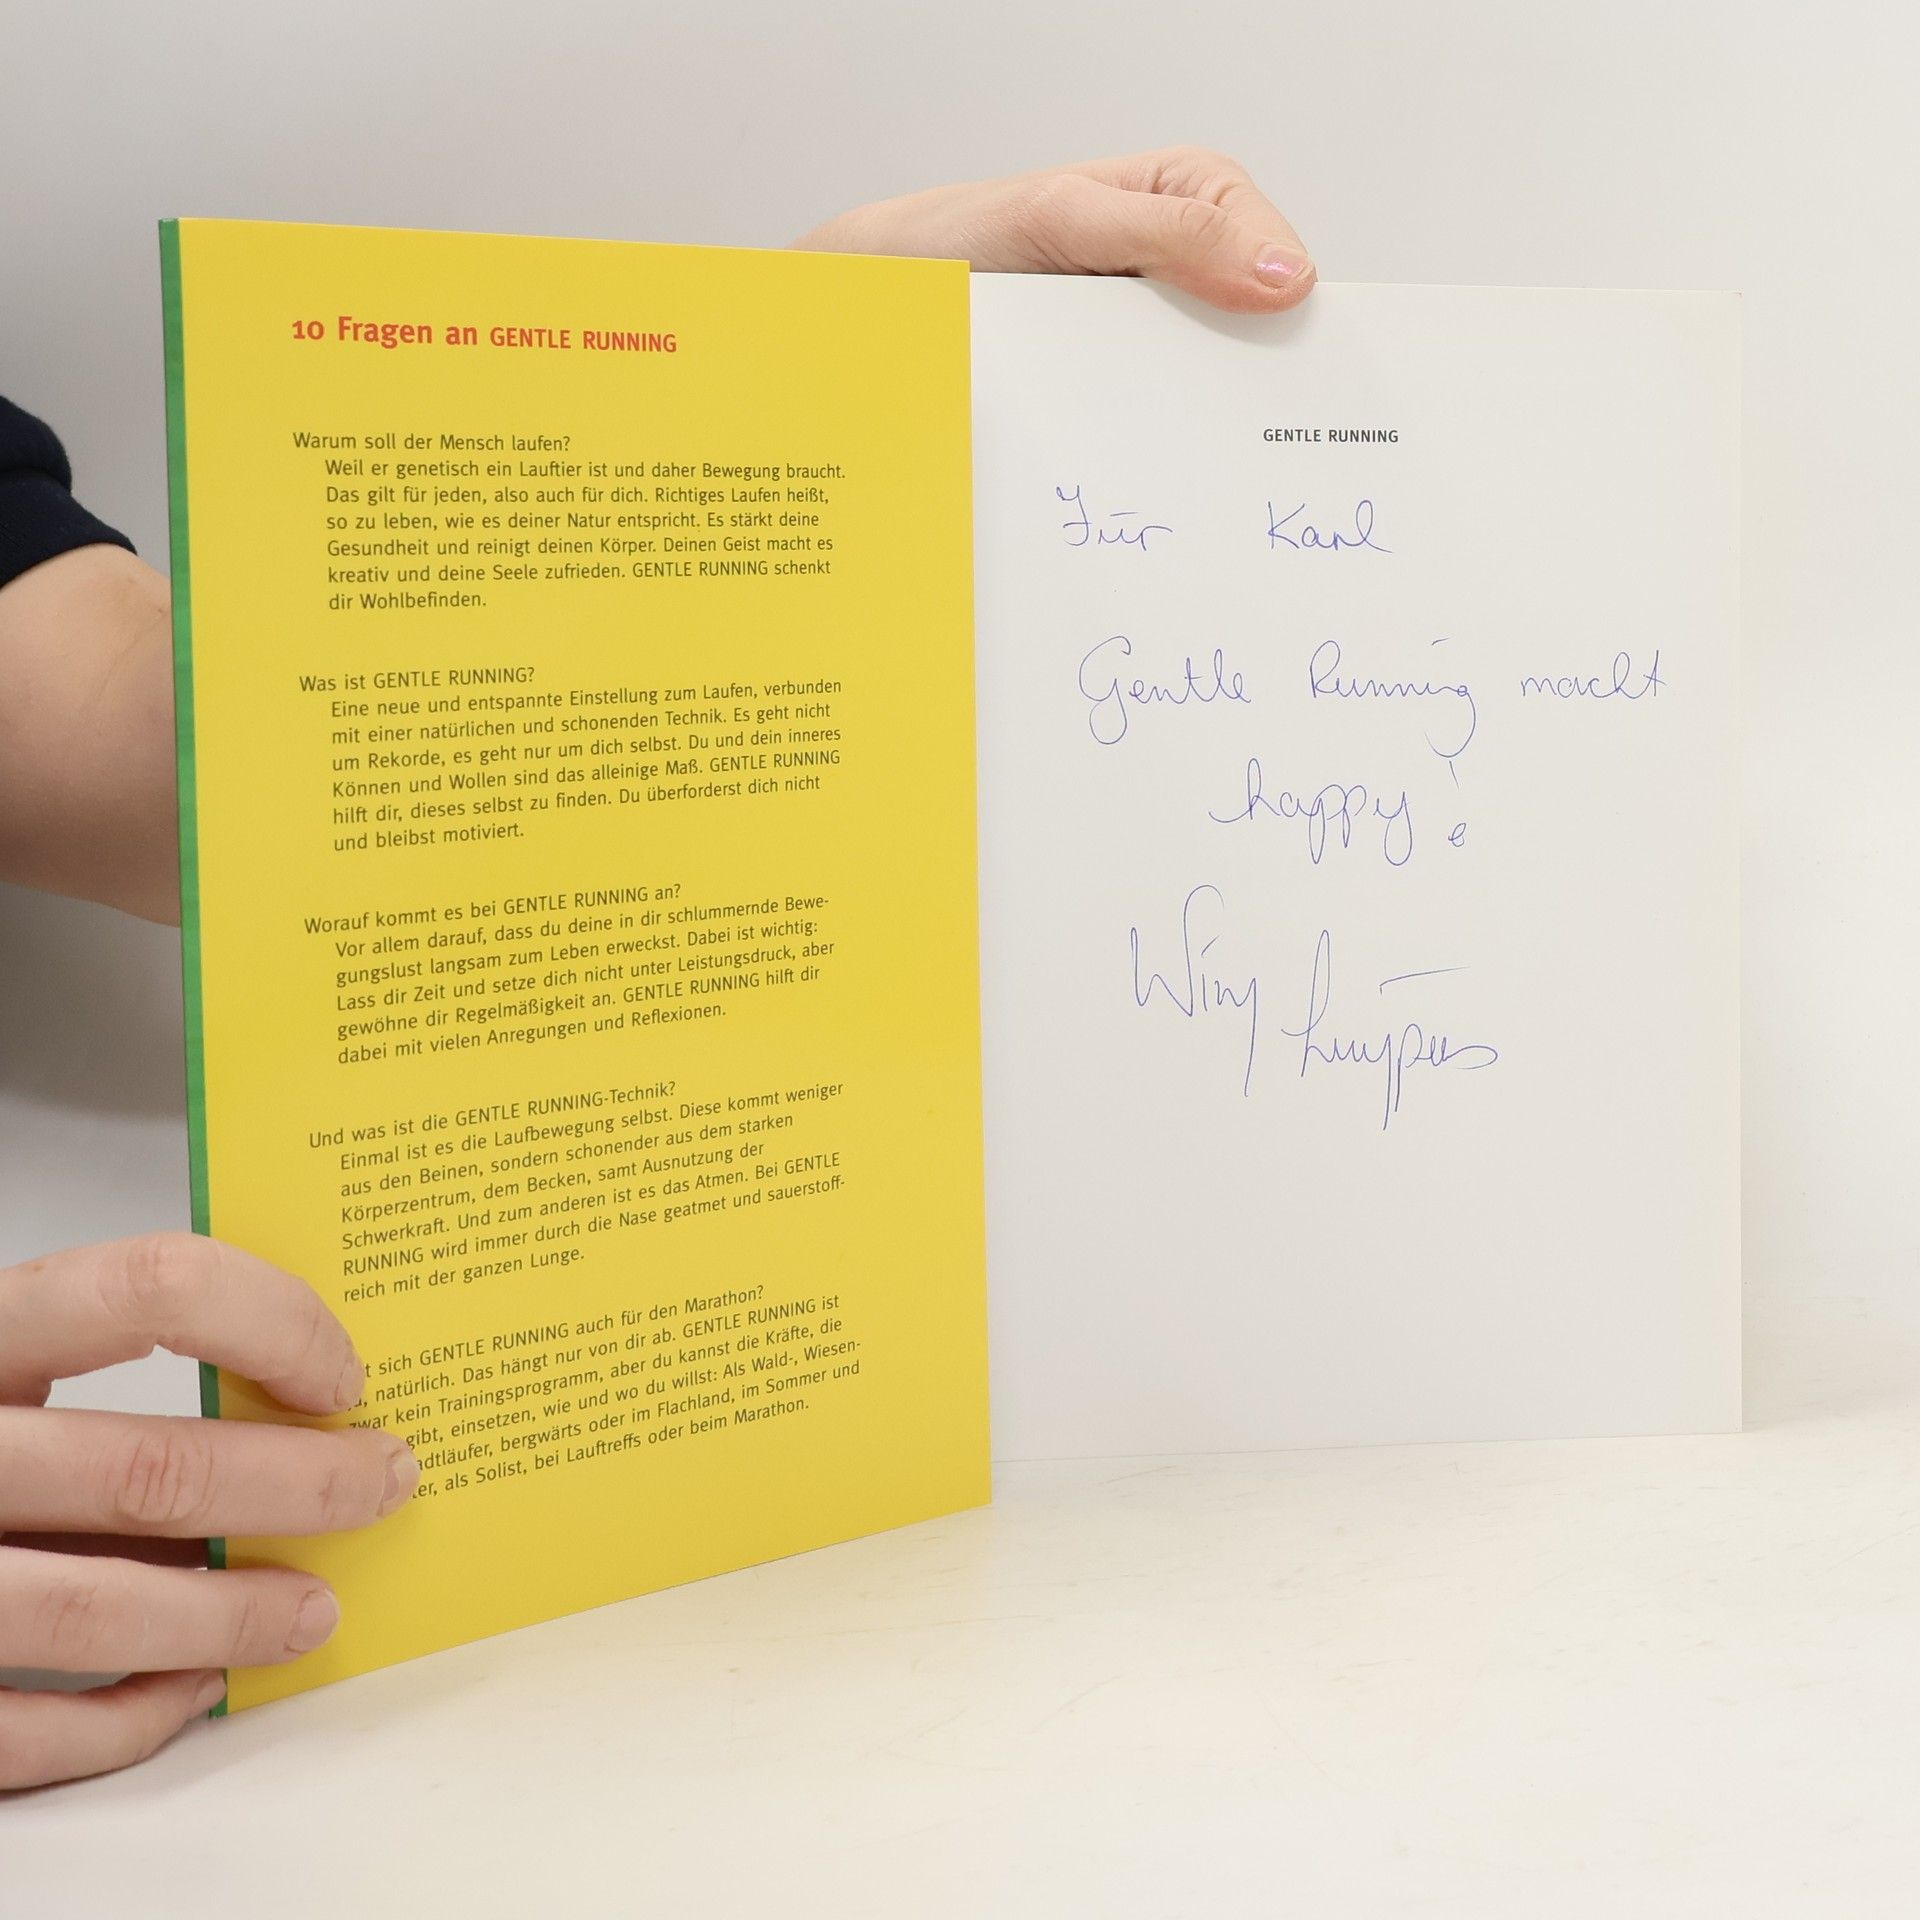 10 Fragen an GENTLE RUNNING
Warum soll der Mensch laufen?
Weil er genetisch ein Lauftier ist und daher Bewegung braucht.
Das gilt für jeden, also auch für dich. Richtiges Laufen heißt,
so zu leben, wie es deiner Natur entspricht. Es stärkt deine
Gesundheit und reinigt deinen Körper. Deinen Geist macht es
kreativ und deine Seele zufrieden. GENTLE RUNNING schenkt
dir Wohlbefinden.
Was ist GENTLE RUNNING?
Eine neue und entspannte Einstellung zum Laufen, verbunden
mit einer natürlichen und schonenden Technik. Es geht nicht
um Rekorde, es geht nur um dich selbst. Du und dein inneres
Können und Wollen sind das alleinige Maß. GENTLE RUNNING
hilft dir, dieses selbst zu finden. Du überforderst dich nicht
und bleibst motiviert.
Worauf kommt es bei GENTLE RUNNING an?
Vor allem darauf, dass du deine in dir schlummernde Bewe-
gungslust langsam zum Leben erweckst. Dabei ist wichtig:
Lass dir Zeit und setze dich nicht unter Leistungsdruck, aber
gewöhne dir Regelmäßigkeit an. GENTLE RUNNING hilft dir
dabei mit vielen Anregungen und Reflexionen.
Und was ist die GENTLE RUNNING-Technik?
Einmal ist es die Laufbewegung selbst. Diese kommt weniger
aus den Beinen, sondern schonender aus dem starken
Körperzentrum, dem Becken, samt Ausnutzung der
Schwerkraft. Und zum anderen ist es das Atmen. Bei GENTLE
RUNNING wird immer durch die Nase geatmet und sauerstoff-
reich mit der ganzen Lunge.
t sich GENTLE RUNNING auch für den Marathon?
, natürlich. Das hängt nur von dir ab. GENTLE RUNNING ist
zwar kein Trainingsprogramm, aber du kannst die Kräfte, die
gibt, einsetzen, wie und wo du willst: Als Wald-, Wiesen-
adtläufer, bergwärts oder im Flachland, im Sommer und
ter, als Solist, bei Lauftreffs oder beim Marathon.
GENTLE RUNNING
Für Karl
Gentle Running macht
happy!